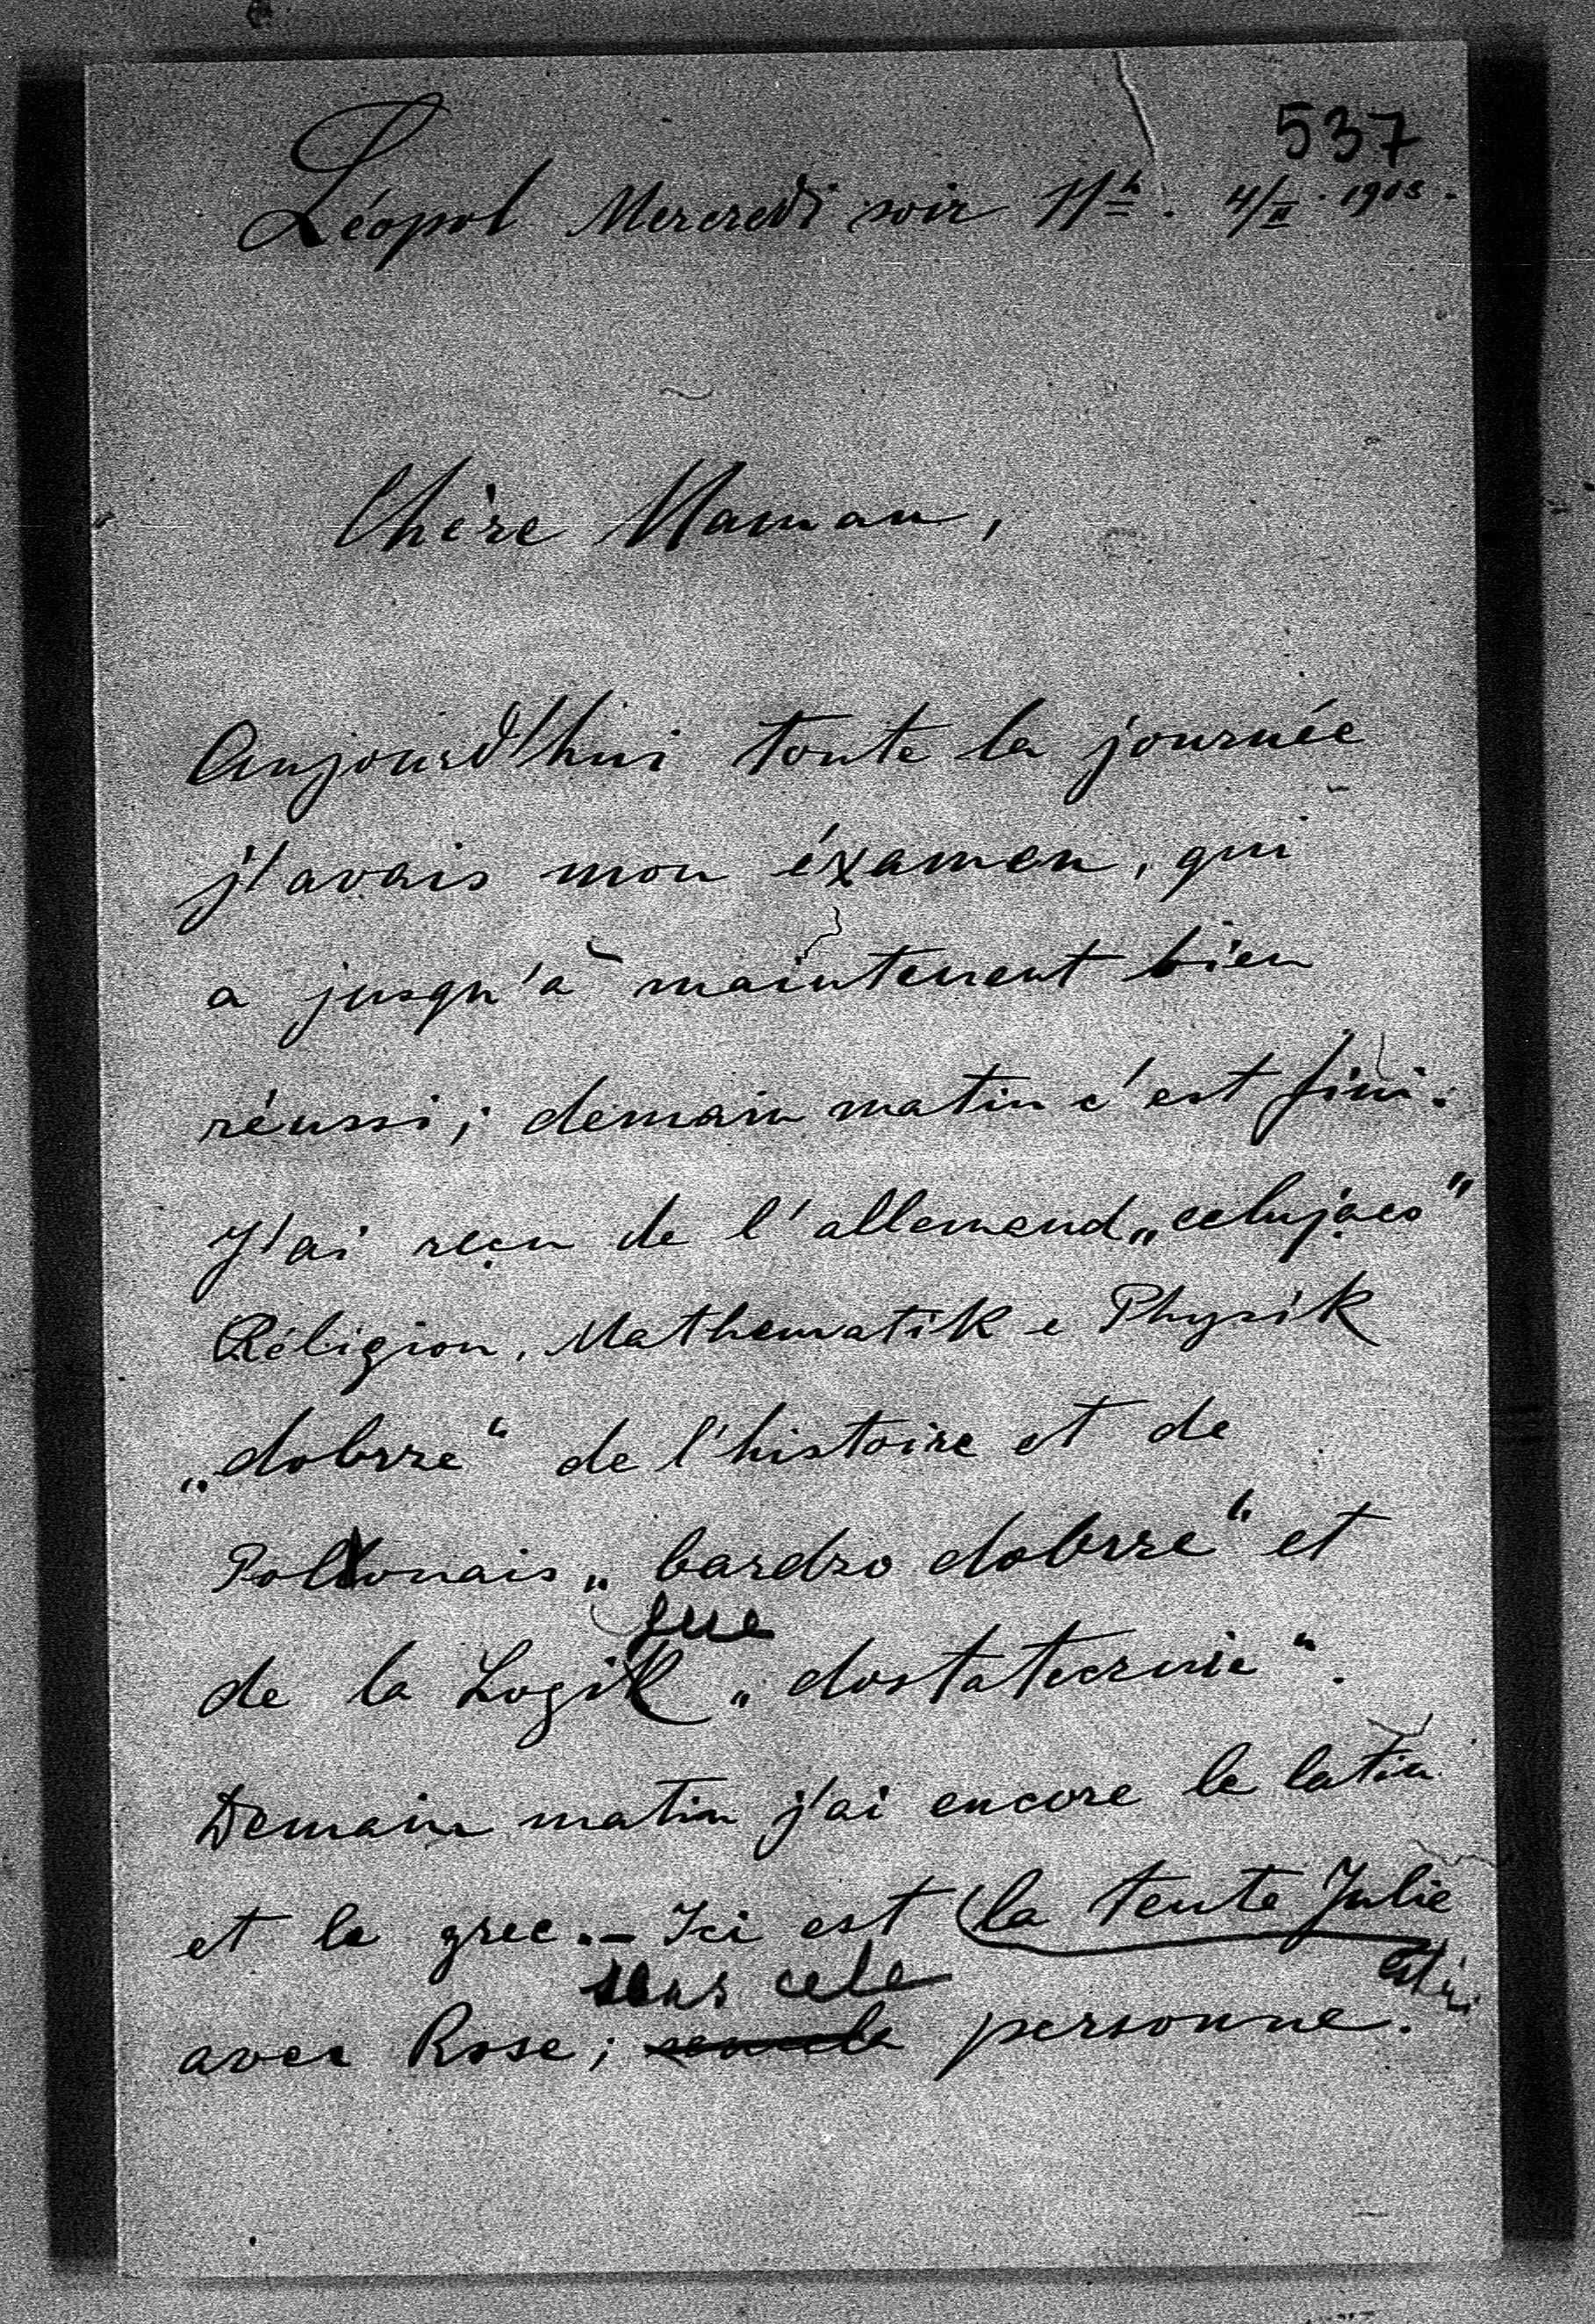 537
Léopol Mercredi soir 11h. 4/II. 1903.
Chère Maman,
Aujourd'hui toute la journée
j'avais mon éxamen, qui
a jusqu'à maintenent bien
réussi; demain matin c'est fini.
J'ai reçu de l'allemend „celująco"
Réligion, Mathematik e Physik
„dobrze" de l'histoire et de
Polonais „bardzo dobrze" et
que
de la Logik „dostatecznie".
Demain matin j'ai encore le latin
et le grec. – Ici est la tente Julie
est ici
sens cele
avec Rose; personne.